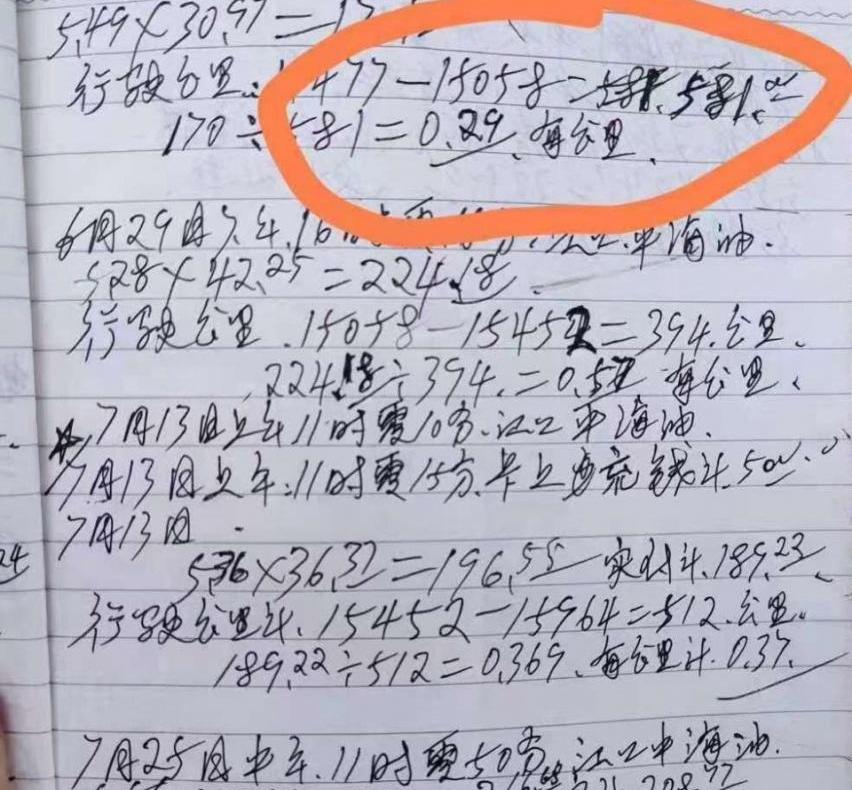 5.49×30.97=17
行驶公里:1477-15058=581. 581.
170÷581=0.29. 每公里.
6月29日下午.16 江口.中海油.
5.28×42.25=224.18
行驶公里.15058-15452=394.公里.
224.18÷394.=0.57 每公里.
7月13日上午11时零10分.江口中海油.
7月13日上午:11时零15分.卡上内充钱计.500.
7月13日
5.36×36.37=196.55 实付计.189.23
行驶公里计.15452-15964=512.公里.
189.22÷512=0.369.每公里计.0.37.
7月25日中午.11时零50分.江口中海油.